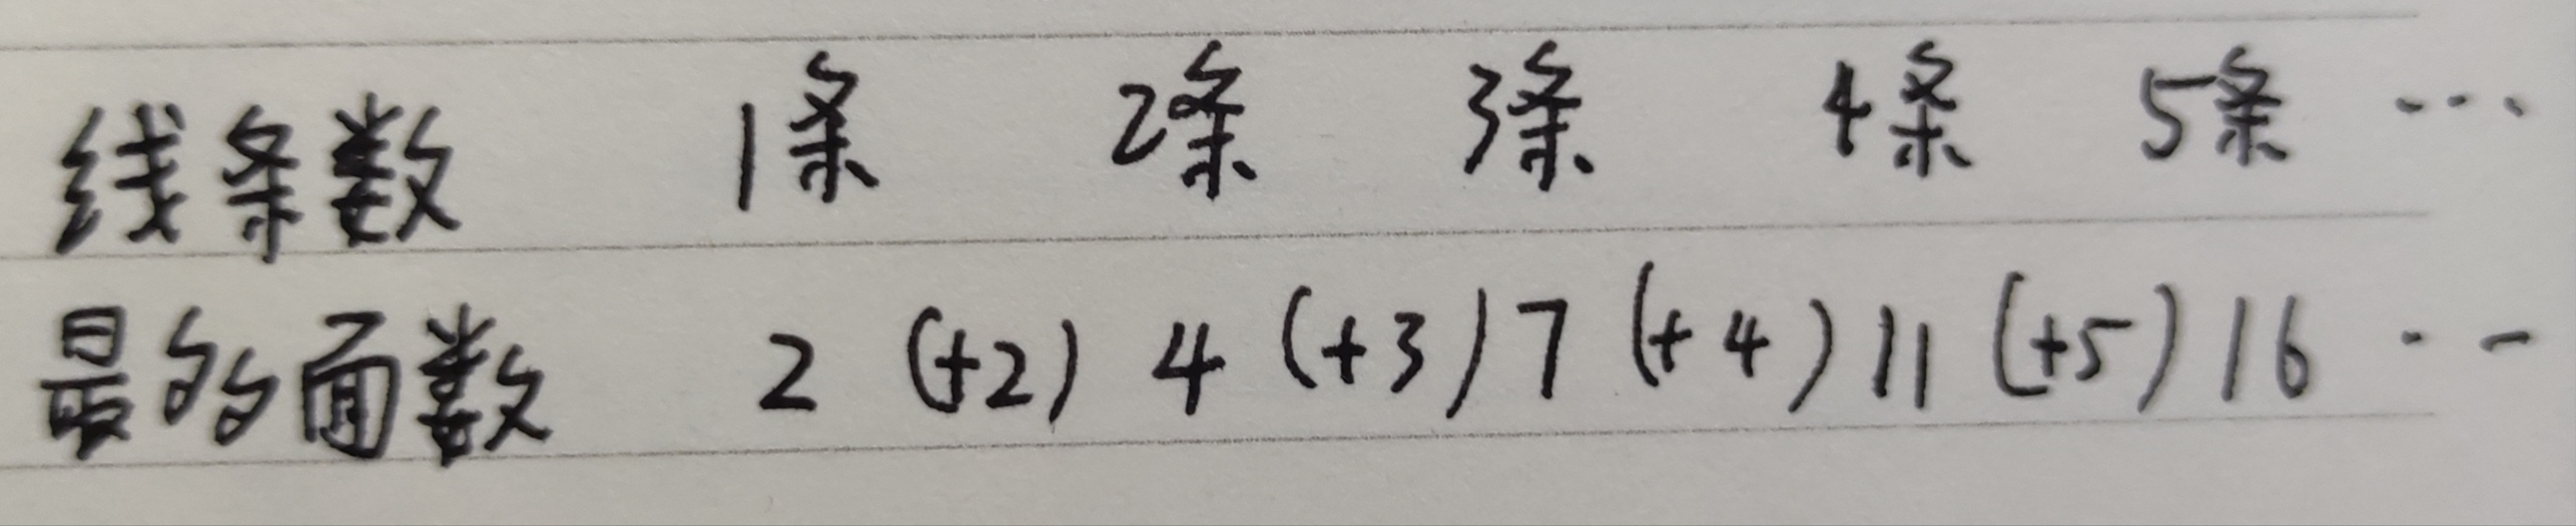 线条数 1条 2条 3条 4条 5条 ...
最多面数 2 (+2) 4 (+3) 7 (+4) 11 (+5) 16 ...